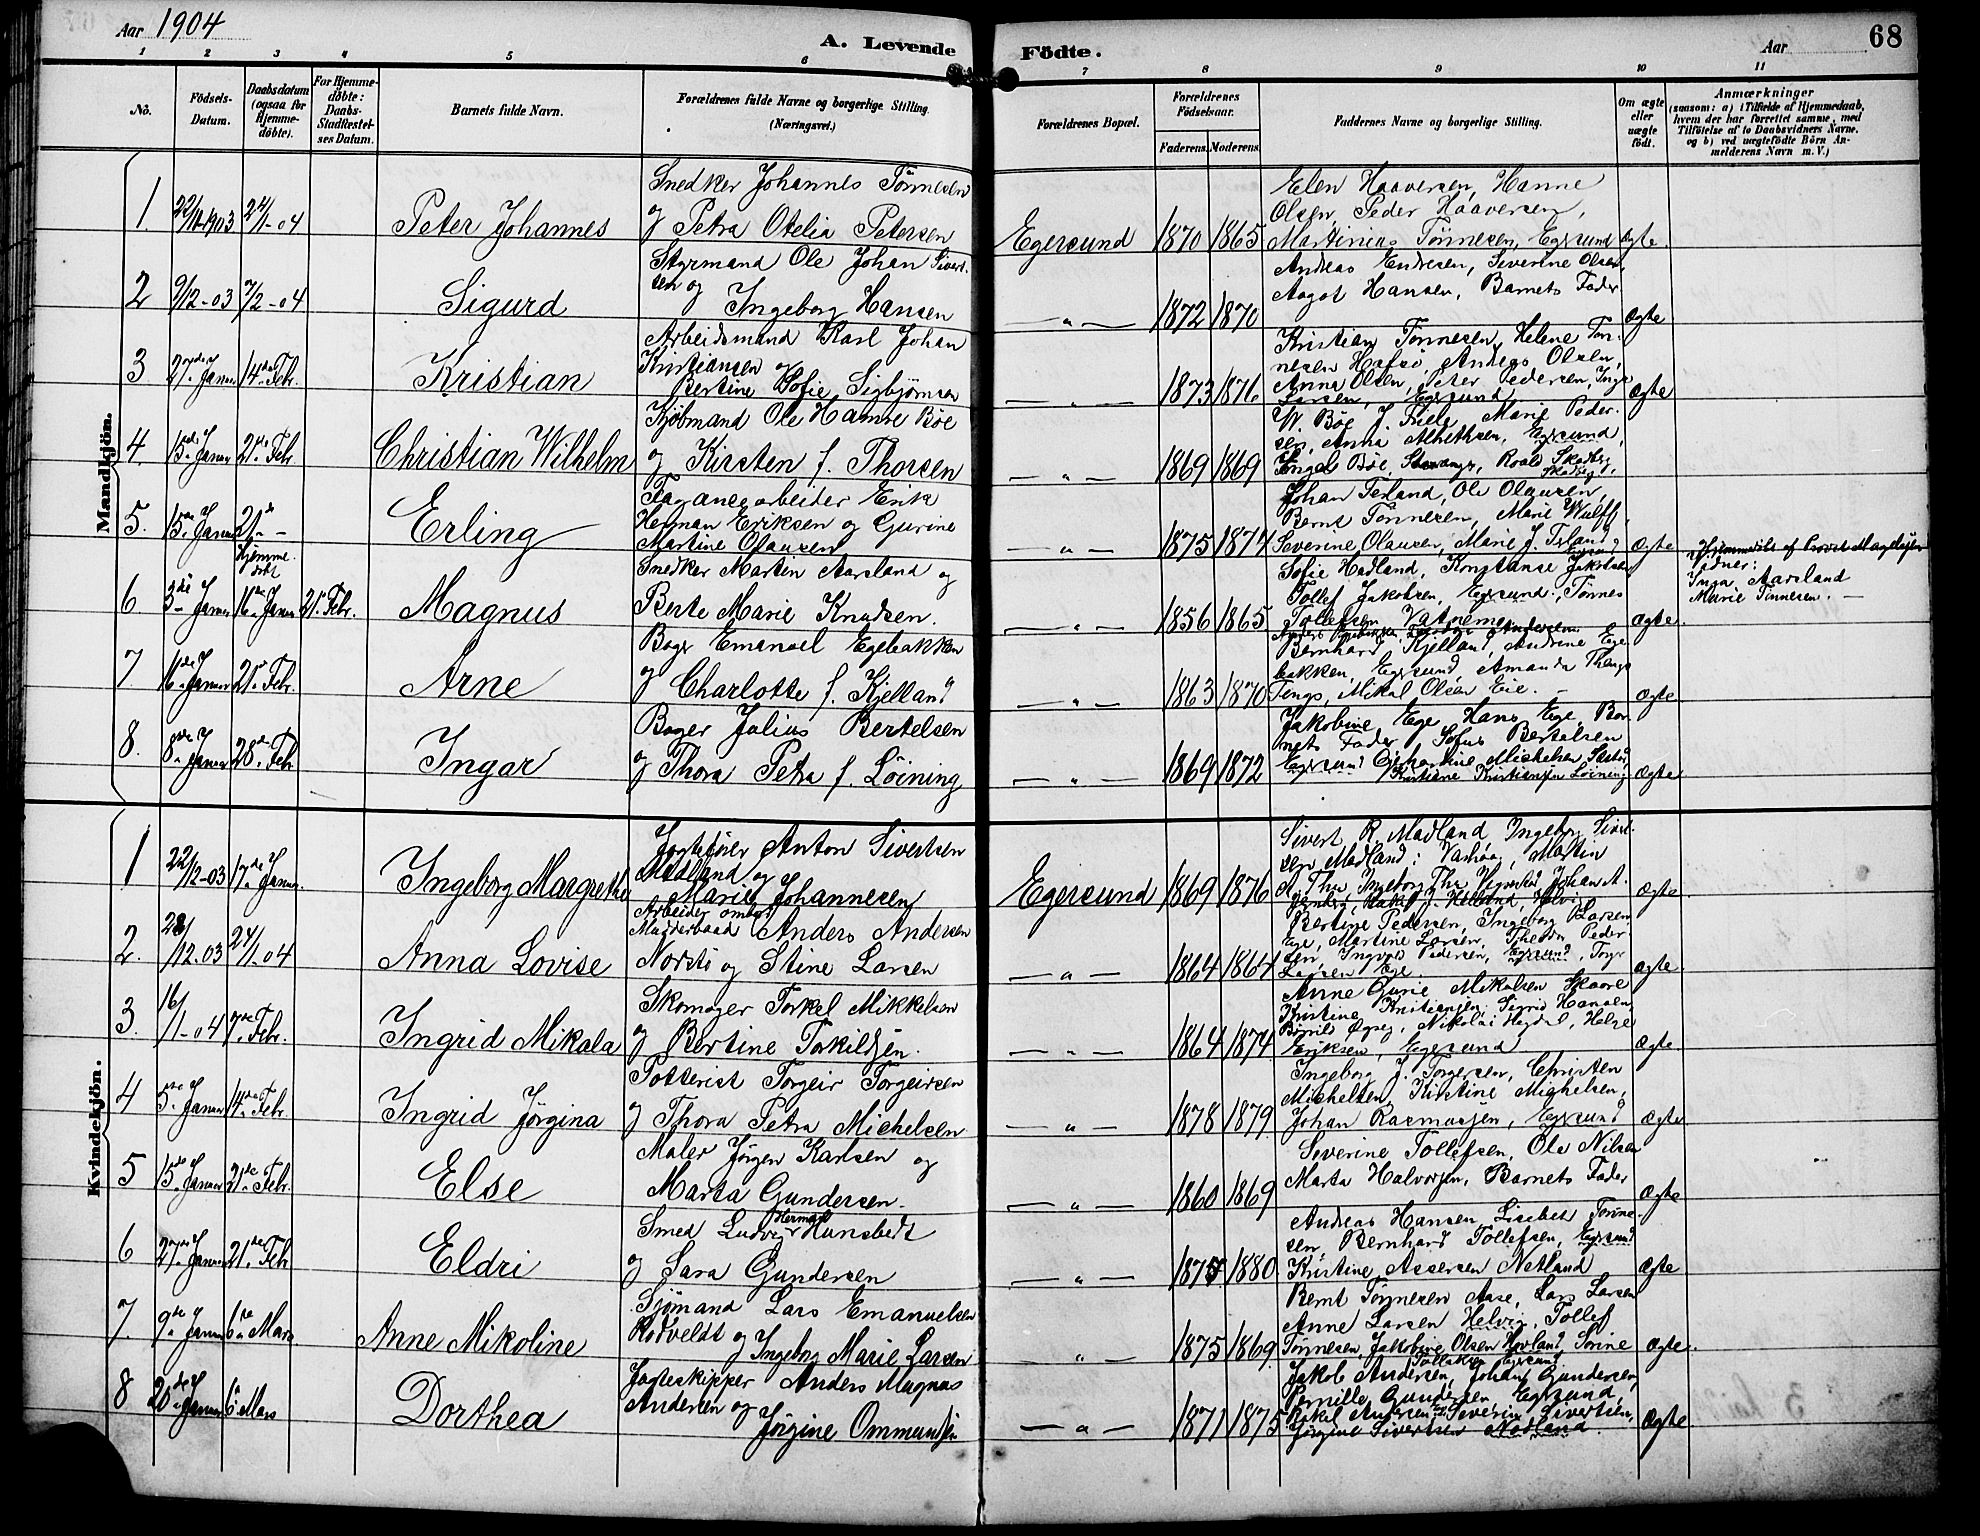 Aar 1904
A. Levende Födte.
Aar
68
1 2 3 4 5 6 7 8 9 10 11
No.
Födsels-Datum.
Daabsdatum (ogsaa for Hjemme-döbte).
For Hjemme-döbte: Daabs-Stadfæstel-ses Datum.
Barnets fulde Navn.
Forældrenes fulde Navne og borgerlige Stilling. (Næringsvei.)
Forældrenes Bopæl.
Forældrenes Födselsaar.
Faderens. Moderens.
Faddernes Navne og borgerlige Stilling.
Om ægte eller uægte födt.
Anmærkninger
(saasom: a) i Tilfælde af Hjemmedaab, hvem der har forrettet samme, med Tilföielse af to Daabsvidners Navne. og b) ved uægtefödte Börn An-melderens Navn m. V.)
Mandkjön.
1. 22/11-1903 24/1-04 Peter Johannes
Snedker Johannes Tönnesen
og Petra Otelia Petersen
Egersund 1870 1865
Elen Haaversen, Hanne
Olsen, Peder Haaversen,
Martinius Tönnesen, Egrsund
ægte.
2 9/12-03 7/2-04 Sigurd
Styrmand Ole Johan Sivert-
sen og
Ingeborg Hansen
— " — 1872 1870
Andreas Endresen, Severine Olsen,
Aagot Hansen, Barnets Fader.
ægte
3 27de Januar 14de Febr. Kristian
Arbeidsmand Karl Johan
Kristiansen og
Bertine Sofie Sigbjørnsen
— " — 1873 1876
Kristian Tönnesen, Helene Tön-
nesen Hafsö, Andreas Olsen,
Anna Olsen, Peter Pedersen, Inga
Larsen, Egersund
ægte
4. 15de Januar 21de Febr. Christian Wilhelm
Kjöbmand Ole Hamre Böe
og Kirsten f. Thorsen
— " — 1869 1869
W. Böe, J. Friele, Marie Peder-
sen, Anna Egrsund,
Böe, Stavanger, Skadberg
5. 15de Januar 21de — Erling
Fagancearbeider Erik
Herman Eriksen og Gurine
Martine Olausen
— " — 1875 1874
Johan Tesland, Ole Olausen,
Bernt Tönnesen, Marie Wulff,
Severine Olausen, Marie J.
Egrsund
ægte
6 3die Januar Hjemme-döbt 16de Januar 21de Febr. Magnus
Snedker Martin Aarsland og
Berte Marie Knudsen.
— " — 1856 1865
Sofie Hadland, Konstanse Jakobsen
Tollef Jakobsen, Egrsund, Tönnes
Tollefsen Vatnemo
ægte.
Hjemmedöbt af Provst
Vidner:
Inga Aarsland
Marie Tönnesen. —
7. 16de Januar 21de Febr. Arne
Bager Emanuel Egebakken
og Charlotte f. Kjelland
— " — 1863 1870
Bernhard Kjelland, Andrine Ege-
bakken, Egrsund, Amanda
Tengs, Mikal Olsen Eie. —
ægte
8. 8de Januar 28de Febr. Ingar
Bager Julius Bertelsen
og Thora Petra f. Löining
— " — 1869 1872
Jakobine Ege, Hans Ege, Bar-
nets Fader, Sofus Bertelsen
Egrsund, Michelsen
Kristine Kristiansen Löining
ægte
Kvindekjön.
1 22/12-03 17de Januar Ingeborg Margrethe
Jagtefører Anton Sivertsen
Madland og
Marie Johannesen
Egersund 1869 1876
Sivert R. Madland, Ingeborg Sivert-
sen Madland: Varhaug, Martin
Ingeborg Johan A.
Helland, Helvig
ægte
2. 28/12-03 24/1-04 Anna Lovise
Arbeider ombord
Mudderbaad Anders Andersen
Norstö og Stine Larsen
— " — 1864 1864
Bertine Pedersen, Ingeborg Larsen
Ege, Martine Larsen, Theodor Peder-
sen, Ingvald Pedersen, Egrsund,
Larsen Ege.
ægte.
3. 16/1-04 7de Febr. Ingrid Mikala
Skomager Torkel Mikkelsen
og Bertine Torkildsen.
— " — 1864 1874
Anne Gurie Mikalsen Skaare
Kristine Kristiansen, Sigrid Hansen,
Nikolai Hegdal, Helge
Eriksen, Egersund
ægte.
4 5te Januar 14de Febr. Ingrid Jörgina
Potterist Torgeir Torgeirsen
og Thora Petra Michelsen
— " — 1878 1879
Ingeborg J. Torgersen, Christen
Michelsen, Kristine Michelsen,
Johan Rasmussen, Egrsund
ægte
5 15de Januar 21de Febr. Else
Maler Jörgen Karlsen og
Marta Gundersen.
— " — 1860 1869
Severine Tollefsen, Ole Nilsen
Marta Halvorsen, Barnets Fader
ægte
6 27de Januar 21de Febr Eldri
Smed Ludvig Herman Hunsbedt
og Sara Gundersen
— " — 1875 1880
Andreas Hansen, Lisebet Tönne-
sen, Bernhard Tollefsen, Egrsund
Kristine Assersen Netland
ægte
7. 9de Januar 6te Mars Anne Mikoline
Sjømand Lars Emanuelsen
Rodveldt og Ingeborg Marie Larsen
— " — 1875 1869
Bernt Tönnesen Aase, Lars Larsen
Anne Larsen Helvig, Tollef
Tönnesen, Jakobine Olsen Hovland, Sorine
Tollaksen Egrsund
ægte.
8 20de Januar 6 Mars Dorthea
Jagteskipper Anders Magnus
Andersen og
Jörgine Ommundsen
— " — 1871 1875
Jakob Andersen, Johan Gundersen,
Pernille Gundersen Egrsund,
Rakel Andersen, Severin Sivertsen,
Jörgine Sivertsen Nodland.
ægte